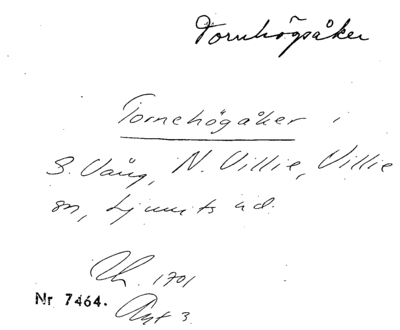 Tornhögsåker
Tornehögåker i
S. Vång, N. Villie, Villie
sn, Ljunits hd.
Lh. 1701
Nr 7464.
Akt 3